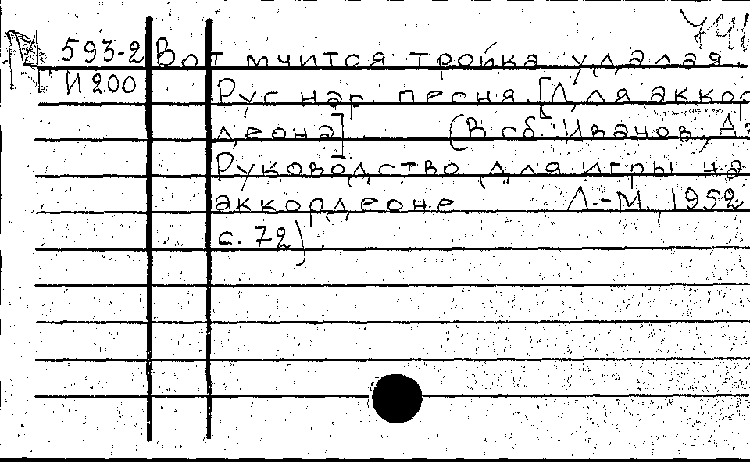 741
593-2 Вот мчится тройка удалая.
И 200 Рус. нар. песня. [Для аккор
деона]. (В сб.: Иванов, Аз
Руководство для игры на
аккордеоне. Л.-М. 1952
с. 72)